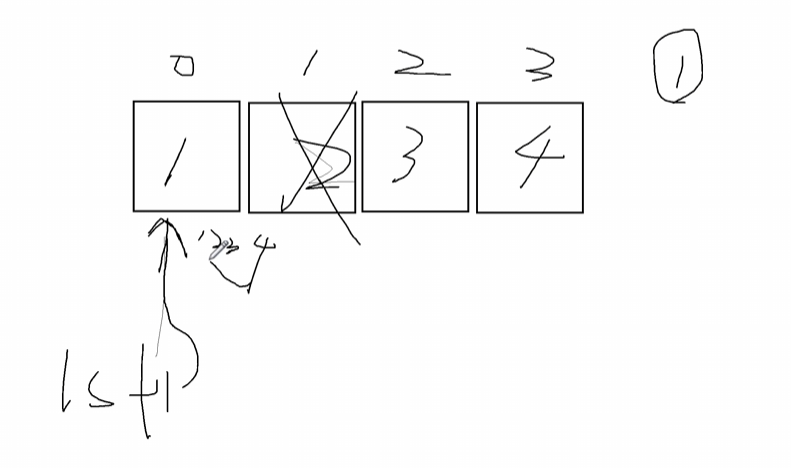 0 1 2 3 1
1 2 3 4
lst1